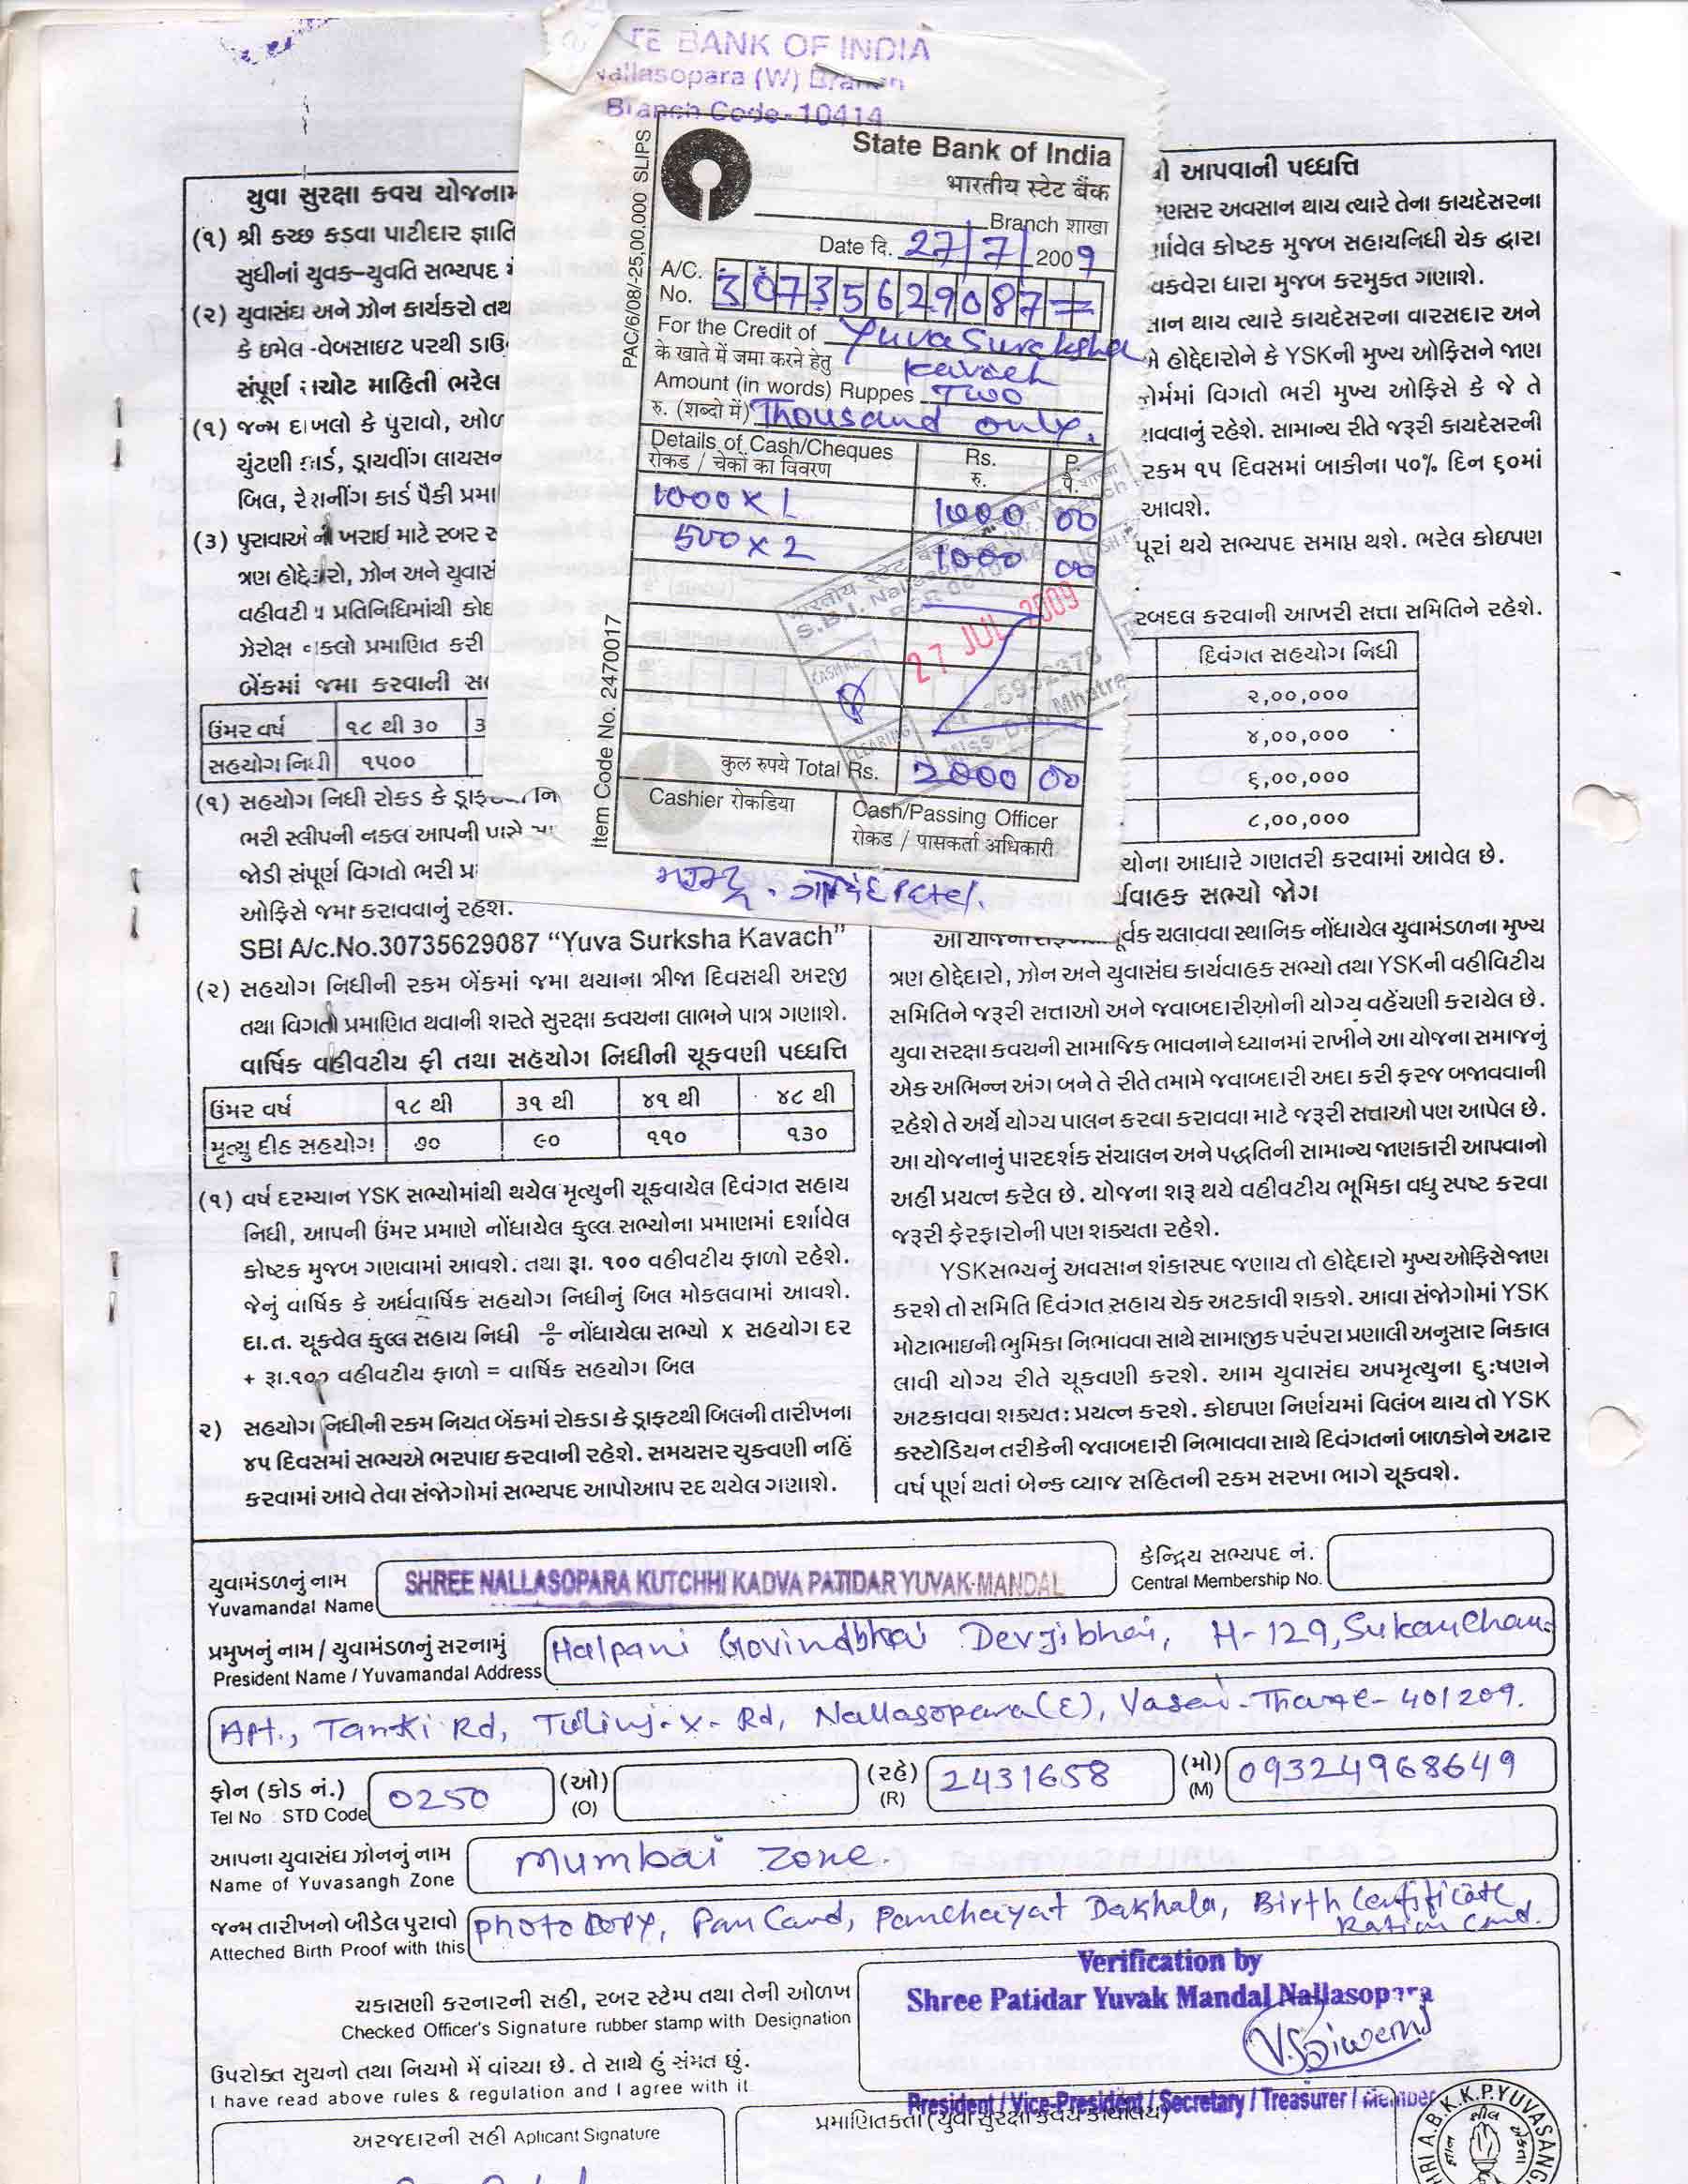 TE BANK OF INDIA
Nallasopara (W) Branch
Branch Code-10414
PAC/6/08/-25,00,000 SLIPS
State Bank of India
भारतीय स्टेट बैंक
Branch शाखा
Date दि. 27/7/2009
A/C. No. 30735629087=
For the Credit of Yuva Suraksha
के खाते में जमा करने हेतु Kavach
Amount (in words) Ruppes Two
रु. (शब्दो में) Thousand only.
Details of Cash/Cheques Rs. P.
रोकड / चेकों का विवरण रु. पै.
1000 x 1 1000 00
500 x 2 1000 00
27 JUL 2009
कुल रुपये Total Rs. 2000 00
Cashier रोकडिया
Cash/Passing Officer
रोकड / पासकर्ता अधिकारी
Item Code No. 2470017
યુવા સુરક્ષા કવચ યોજનામ
(૧) શ્રી કચ્છ કડવા પાટીદાર જ્ઞાતિ
સુધીનાં યુવક-યુવતિ સભ્યપદ
(૨) યુવાસંઘ અને ઝોન કાર્યકરો તથ
કે ઇમેલ -વેબસાઇટ પરથી ડાઉ
સંપૂર્ણ સચોટ માહિતી ભરેલ
(૧) જન્મ દાખલો કે પુરાવો, ઓળ
ચુંટણી કાર્ડ, ડ્રાયવીંગ લાયસન
બિલ, રેશનીંગ કાર્ડ પૈકી પ્રમા
(૩) પુરાવાઓની ખરાઈ માટે રબર સ
ત્રણ હોદ્દેદારો, ઝોન અને યુવાસં
વહીવટીય પ્રતિનિધિમાંથી કોઇ
ઝેરોક્ષ નકલો પ્રમાણિત કરી
બેંકમાં જમા કરવાની સ
ઉંમર વર્ષ ૧૮ થી ૩૦ ૩
સહયોગ નિધી ૧૫૦૦
(૧) સહયોગ નિધી રોકડ કે ડ્રાફ્ટ
ભરી સ્લીપની નકલ આપની પાસે
જોડી સંપૂર્ણ વિગતો ભરી પ્ર
ઓફિસે જમા કરાવવાનું રહેશે.
SBI A/c.No.30735629087 “Yuva Surksha Kavach”
(૨) સહયોગ નિધીની રકમ બેંકમાં જમા થયાના ત્રીજા દિવસથી અરજી
તથા વિગતો પ્રમાણિત થવાની શરતે સુરક્ષા કવચના લાભને પાત્ર ગણાશે.
વાર્ષિક વહીવટીય ફી તથા સહયોગ નિધીની ચૂકવણી પધ્ધતિ
ઉંમર વર્ષ ૧૮ થી ૩૧ થી ૪૧ થી ૪૮ થી
મૃત્યુ દીઠ સહયોગ ૭૦ ૯૦ ૧૧૦ ૧૩૦
(૧) વર્ષ દરમ્યાન YSK સભ્યોમાંથી થયેલ મૃત્યુની ચૂકવાયેલ દિવંગત સહાય
નિધી, આપની ઉંમર પ્રમાણે નોંધાયેલ કુલ્લ સભ્યોના પ્રમાણમાં દર્શાવેલ
કોષ્ટક મુજબ ગણવામાં આવશે. તથા રૂા. ૧૦૦ વહીવટીય ફાળો રહેશે.
જેનું વાર્ષિક કે અર્ધવાર્ષિક સહયોગ નિધીનું બિલ મોકલવામાં આવશે.
દા.ત. ચૂકવેલ કુલ્લ સહાય નિધી ÷ નોંધાયેલા સભ્યો x સહયોગ દર
+ રૂા.૧૦૦ વહીવટીય ફાળો = વાર્ષિક સહયોગ બિલ
૨) સહયોગ નિધીની રકમ નિયત બેંકમાં રોકડા કે ડ્રાફટથી બિલની તારીખના
૪૫ દિવસમાં સભ્યએ ભરપાઇ કરવાની રહેશે. સમયસર ચુકવણી નહિં
કરવામાં આવે તેવા સંજોગોમાં સભ્યપદ આપોઆપ રદ થયેલ ગણાશે.
ી આપવાની પધ્ધતિ
રણસર અવસાન થાય ત્યારે તેના કાયદેસરના
ર્શાવેલ કોષ્ટક મુજબ સહાયનિધી ચેક દ્વારા
વકવેરા ધારા મુજબ કરમુક્ત ગણાશે.
સાન થાય ત્યારે કાયદેસરના વારસદાર અને
હોદ્દેદારોને કે YSKની મુખ્ય ઓફિસને જાણ
ફોર્મમાં વિગતો ભરી મુખ્ય ઓફિસે કે જે તે
ાવવાનું રહેશે. સામાન્ય રીતે જરૂરી કાયદેસરની
રકમ ૧૫ દિવસમાં બાકીના ૫૦% દિન ૬૦માં
આવશે.
પૂરાં થયે સભ્યપદ સમાપ્ત થશે. ભરેલ કોઇપણ
રબદલ કરવાની આખરી સત્તા સમિતિને રહેશે.
દિવંગત સહયોગ નિધી
૨,૦૦,૦૦૦
૪,૦૦,૦૦૦
૬,૦૦,૦૦૦
૮,૦૦,૦૦૦
ચોના આધારે ગણતરી કરવામાં આવેલ છે.
ર્યવાહક સભ્યો જોગ
ર્વક ચલાવવા સ્થાનિક નોંધાયેલ યુવામંડળના મુખ્ય
ત્રણ હોદ્દેદારો, ઝોન અને યુવાસંઘ કાર્યવાહક સભ્યો તથા YSKની વહીવિટીય
સમિતિને જરૂરી સત્તાઓ અને જવાબદારીઓની યોગ્ય વહેંચણી કરાયેલ છે.
યુવા સરક્ષા કવચની સામાજિક ભાવનાને ધ્યાનમાં રાખીને આ યોજના સમાજનું
એક અભિન્ન અંગ બને તે રીતે તમામે જવાબદારી અદા કરી ફરજ બજાવવાની
રહેશે તે અર્થે યોગ્ય પાલન કરવા કરાવવા માટે જરૂરી સત્તાઓ પણ આપેલ છે.
આ યોજનાનું પારદર્શક સંચાલન અને પદ્ધતિની સામાન્ય જાણકારી આપવાનો
અહીં પ્રયત્ન કરેલ છે. યોજના શરૂ થયે વહીવટીય ભૂમિકા વધુ સ્પષ્ટ કરવા
જરૂરી ફેરફારોની પણ શક્યતા રહેશે.
YSKસભ્યનું અવસાન શંકાસ્પદ જણાય તો હોદ્દેદારો મુખ્ય ઓફિસે જાણ
કરશે તો સમિતિ દિવંગત સહાય ચેક અટકાવી શકશે. આવા સંજોગોમાં YSK
મોટાભાઇની ભુમિકા નિભાવવા સાથે સામાજીક પરંપરા પ્રણાલી અનુસાર નિકાલ
લાવી યોગ્ય રીતે ચૂકવણી કરશે. આમ યુવાસંઘ અપમૃત્યુના દુઃષણને
અટકાવવા શક્યતઃ પ્રયત્ન કરશે. કોઇપણ નિર્ણયમાં વિલંબ થાય તો YSK
કસ્ટોડિયન તરીકેની જવાબદારી નિભાવવા સાથે દિવંગતનાં બાળકોને અઢાર
વર્ષ પૂર્ણ થતાં બેન્ક વ્યાજ સહિતની રકમ સરખા ભાગે ચૂકવશે.
યુવામંડળનું નામ SHREE NALLASOPARA KUTCHHI KADVA PATIDAR YUVAK-MANDAL
Yuvamandal Name
કેન્દ્રિય સભ્યપદ નં.
Central Membership No.
પ્રમુખનું નામ / યુવામંડળનું સરનામું Halpani Govindbhai Devjibhai, H-129, Sukanchan-
President Name / Yuvamandal Address
Apt., Tanki Rd, Tulinj-X-Rd, Nallasopara(E), Vasai-Thane-401209.
ફોન (કોડ નં.) 0250 (ઓ) (રહે) 2431658 (મો) 09324968649
Tel No STD Code (O) (R) (M)
આપના યુવાસંઘ ઝોનનું નામ Mumbai Zone.
Name of Yuvasangh Zone
જન્મ તારીખનો બીડેલ પુરાવો Photo copy, Pan Card, Panchayat Dakhala, Birth Certificate,
Atteched Birth Proof with this Ration Card.
Verification by
Shree Patidar Yuvak Mandal Nallasopara
ચકાસણી કરનારની સહી, રબર સ્ટેમ્પ તથા તેની ઓળખ
Checked Officer's Signature rubber stamp with Designation
ઉપરોક્ત સુચનો તથા નિયમો મેં વાંચ્યા છે. તે સાથે હું સંમત છું.
I have read above rules & regulation and I agree with it
President / Vice-President / Secretary / Treasurer / Member
પ્રમાણિતકર્તા (યુવા સુરક્ષા કવચ કાર્યાલય)
અરજદારની સહી Aplicant Signature
SHRI A.B.K.K.P.YUVASANGH